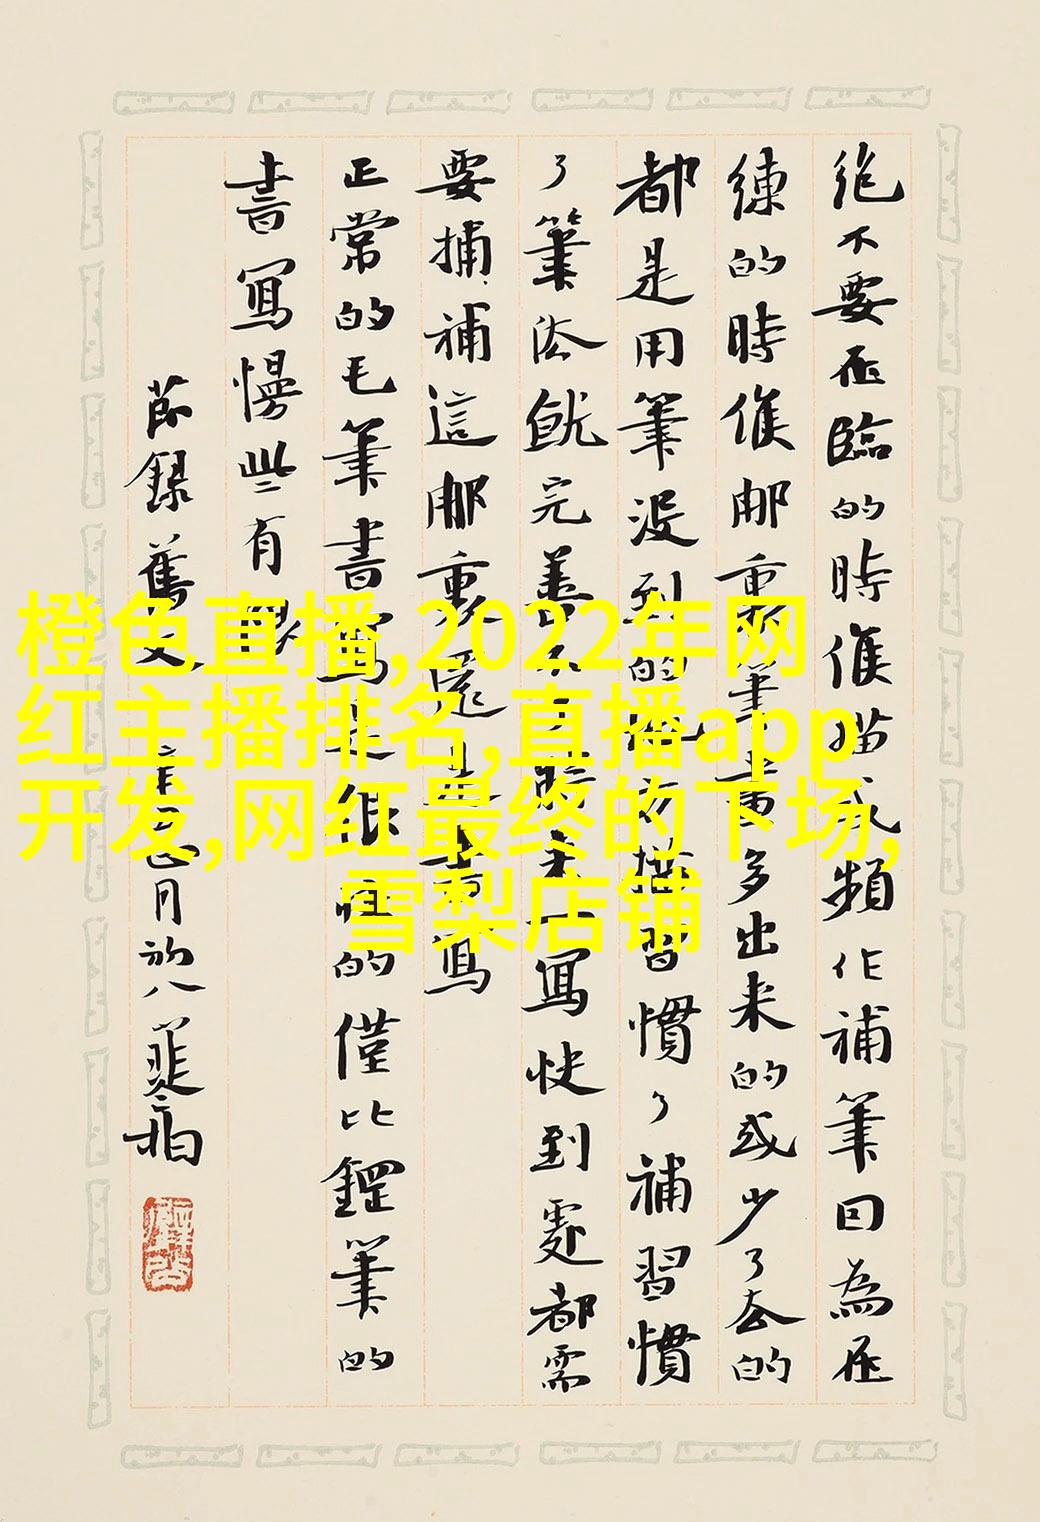 絕不要在臨的時候描或頻作補筆因為在
練的時候那裏筆畫多出来的或少了去的
都是用筆沒到的地方描習慣了補習慣
了筆法就完善不了將来一寫快到處都需
要捕補這那裏還是書寫
正常的毛筆書寫是很慢的僅比鋼筆的
書寫慢些有限
節錄舊文正月初八
橙色直播,2022年网
红主播排名,直播app
开发,网红最终的下场,
雪梨店铺